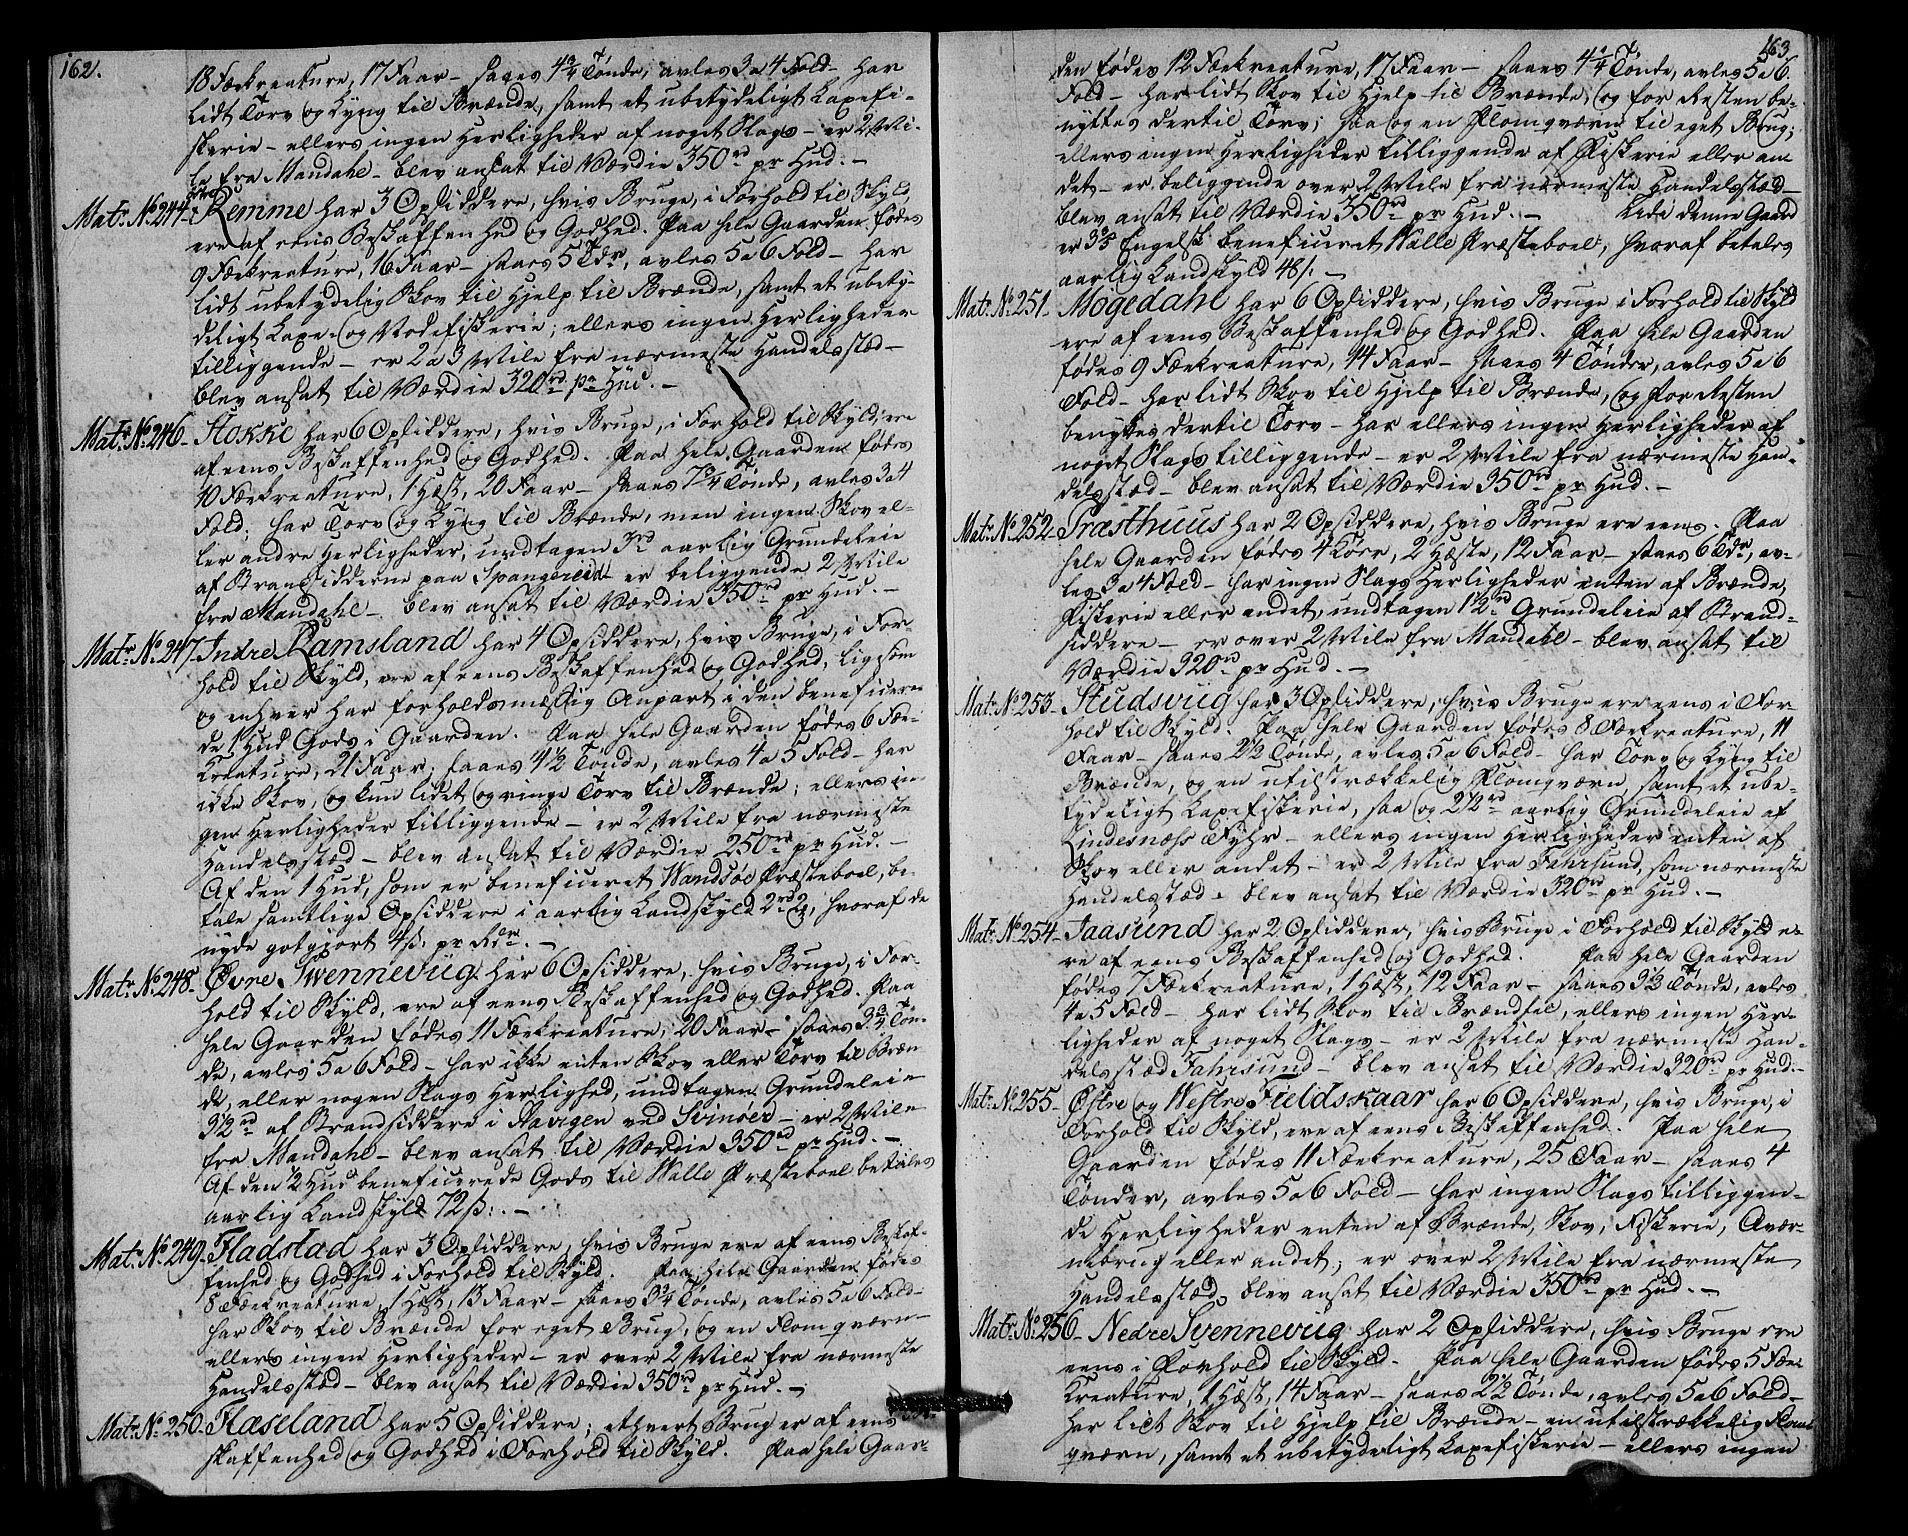 162.
18 Fækreature, 17 Faar – saaes 4 3/4 Tønde, avles 3 a 4 Fold – har
lidt Torv og Lyng til Brænde, samt et ubetydeligt Laxefi-
skerie – ellers ingen Herligheder af noget Slags – er 2 Mi-
le fra Mandahl – blev ansat til Værdie 350 rd pr Hud. –
Matr. No. 244. Remme har 3 Opsiddere, hvis Bruge, i Forhold til Skyld,
ere af eens Beskaffenhed og Godhed. Paa hele Gaarden fødes
9 Fækreature, 16 Faar – saaes 5 Tdr, avles 5 a 6 Fold – har
lidt ubetydelig Skov til Hjelp til Brænde, samt et ubety-
deligt Laxe- og Nodefiskerie; ellers ingen Herligheder
tilliggende – er 2 a 3 Mile fra nærmeste Handelsstæd –
blev ansat til Værdie 320 rd pr Hud. –
Matr. No. 246. Stokke har 6 Opsiddere, hvis Bruge, i Forhold til Skyld, ere
af eens Beskaffenhed og Godhed. Paa hele Gaarden fødes
10 Fækreature, 1 Hæst, 20 Faar – saaes 7 3/4 Tønde, avles 3 a 4
Fold; har Torv og Lyng til Brænde, men ingen Skov el-
ler andre Herligheder, undtagen 3 rd aarlig Grundeleie
af Strandsidderne paa Spangereid – er beliggende 2 Mile
fra Mandahl – blev ansat til Værdie 350 rd pr Hud. –
Matr. No. 247. Indre Ramsland har 4 Opsiddere, hvis Bruge, i For-
hold til Skyld, ere af eens Beskaffenhed og Godhed, ligesom
og enhver har forholdsmæssig Anpart i den beneficere-
de 1 Hud Gods i Gaarden. Paa hele Gaarden fødes 6 Fæ-
kreature, 21 Faar; saaes 4 1/2 Tønde, avles 4 a 5 Fold – har
ikke Skov, og kun lidet og ringe Torv til Brænde; ellers in-
gen Herligheder tilliggende – er 2 Mile fra nærmeste
Handelsstæd – blev ansat til Værdie 250 rd pr Hud. –
Af den 1 Hud, som er beneficeret Wandsøe Præsteboel, be-
tale samtlige Opsiddere i aarlig Landskyld 2 rd, hvoraf de
nyde gotgjort 4 s. pr Rdr. –
Matr. No. 248. Øvre Swennevüg har 6 Opsiddere, hvis Bruge, i For-
hold til Skyld, ere af eens Beskaffenhed og Godhed. Paa
hele Gaarden fødes 11 Fækreature, 20 Faar – saaes 3 3/4 Tøn-
de, avles 5 a 6 Fold – har ikke enten Skov eller Torv til Bræn-
de, eller nogen Slags Herlighed, undtagen Grundeleie
3 1/2 rd af Strandsiddere i Havigen ved Svinøer – er 2 Mile
fra Mandahl – blev ansat til Værdie 350 rd pr Hud. –
Af den 1/2 Hud beneficerede Gods til Walle Præsteboel betales
aarlig Landskyld 72 s. –
Matr. No. 249. Fladstad har 3 Opsiddere, hvis Bruge ere af eens Beskaf-
fenhed og Godhed i Forhold til Skyld. Paa hele Gaarden fødes
8 Fækreature, 1 Hæst, 13 Faar – saaes 3 3/4 Tønde, avles 5 a 6 Fold –
har Skov til Brænde for eget Brug, og en Flomqværn –
ellers ingen Herligheder – er over 2 Mile fra nærmeste
Handelsstæd – blev ansat til Værdie 350 rd pr Hud. –
Matr. No. 250. Flaseland har 5 Opsiddere; ethvert Brug er af eens Be-
skaffenhed og Godhed i Forhold til Skyld. Paa hele Gaar-
163.
den fødes 12 Fækreature, 17 Faar – saaes 4 1/4 Tønde, avles 5 a 6
Fold – har lidt Skov til Hjelp til Brænde, og for Resten be-
nyttes dertil Torv; saa og en Flomqværn til eget Brug;
ellers ingen Herligheder tilliggende af Fiskerie eller an-
det – er beliggende over 2 Mile fra nærmeste Handelsstæd –
blev ansat til Værdie 350 rd pr Hud. – I denne Gaard
er 3 3/5 Engelsk beneficeret Walle Præsteboel, hvoraf betales
aarlig Landskyld 48 s. –
Matr. No. 251. Møgedahl har 6 Opsiddere, hvis Bruge i Forhold til Skyld
ere af eens Beskaffenhed og Godhed. Paa hele Gaarden
fødes 9 Fækreature, 14 Faar – saaes 4 Tønder, avles 5 a 6
Fold – har lidt Skov til Hjelp til Brænde, og for Resten
benyttes dertil Torv – har ellers ingen Herligheder af
noget Slags tilliggende – er 2 Mile fra nærmeste Han-
delsstæd – blev ansat til Værdie 350 rd pr Hud. –
Matr. No. 252. Præsthuus har 2 Opsiddere, hvis Bruge ere eens. Paa
hele Gaarden fødes 4 Køer, 2 Hæste, 12 Faar – saaes 6 Tdr, av-
les 3 a 4 Fold – har ingen Slags Herligheder enten af Brænde,
Fiskerie eller andet, undtagen 1 1/2 rd Grundeleie af Strand-
siddere – er over 2 Mile fra Mandahl – blev ansat til
Værdie 320 rd pr Hud. –
Matr. No. 253. Studsvüg har 3 Opsiddere, hvis Bruge ere eens i For-
hold til Skyld. Paa hele Gaarden fødes 8 Fækreature, 11
Faar – saaes 2 1/2 Tønde, avles 5 a 6 Fold – har Torv og Lyng til
Brænde, og en utilstrækkelig Flomqværn, samt et ube-
tydeligt Laxefiskerie, saa og 2 1/2 rd aarlig Grundeleie af
Lindesnæss Fyhr – ellers ingen Herligheder enten af
Skov eller andet – er 2 Mile fra Fahrsund, som nærmeste
Handelsstæd – blev ansat til Værdie 320 rd pr Hud. –
Matr. No. 254. Jaasund har 2 Opsiddere, hvis Bruge i Forhold til Skyld e-
re af eens Beskaffenhed og Godhed. Paa hele Gaarden
fødes 7 Fækreature, 1 Hæst, 12 Faar – saaes 3 1/2 Tønde, avles
4 a 5 Fold – har lidt Skov til Brændsel, ellers ingen Her-
ligheder af noget Slags – er 2 Mile fra nærmeste Han-
delsstæd Fahrsund – blev ansat til Værdie 320 rd pr Hud –
Matr. No. 255. Østre og Westre Fieldskaar har 6 Opsiddere, hvis Bruge, i
Forhold til Skyld, ere af eens Beskaffenhed. Paa hele
Gaarden fødes 11 Fækreature, 25 Faar – saaes 4
Tønder, avles 5 a 6 Fold – har ingen Slags tilliggen-
de Herligheder enten af Brænde, Skov, Fiskerie, Qvær-
nebrug eller andet; er over 2 Mile fra nærmeste
Handelsstæd, blev ansat til Værdie 350 rd pr Hud. –
Matr. No. 256. Nedre Svennevüg har 2 Opsiddere, hvis Bruge ere
eens i Forhold til Skyld. Paa hele Gaarden fødes 5 Fæ-
kreature, 1 Hæst, 14 Faar – saaes 2 1/2 Tønde, avles 5 a 6 Fold –
har lidt Skov til Hjelp til Brænde – en utilstrækkelig Flom-
qværn, samt et ubetydeligt Laxefiskerie – ellers ingen